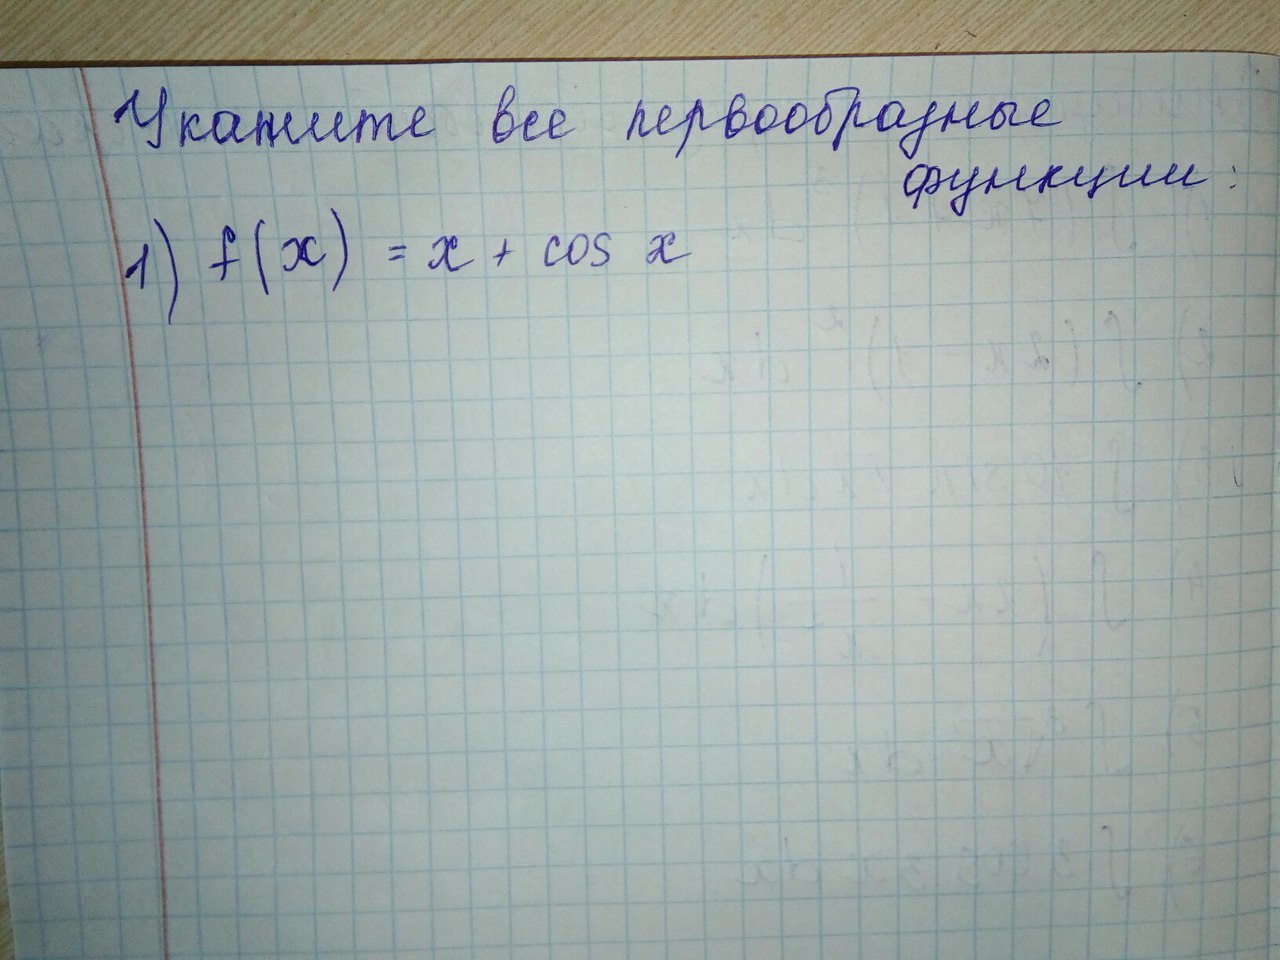 Укажите все первообразные
функции:
1) f(x) = x + cos x